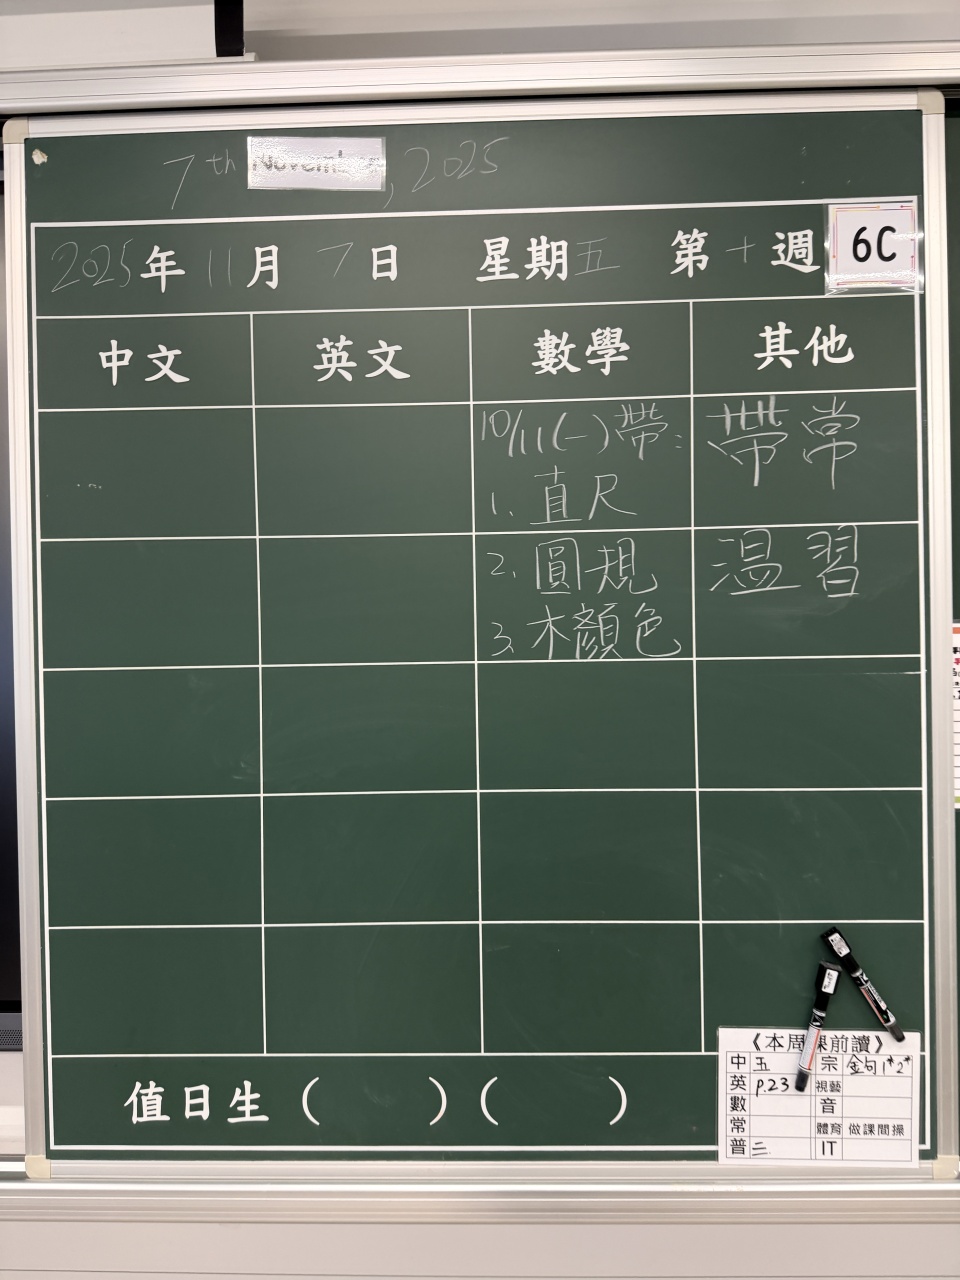 7th November, 2025
2025年11月7日 星期五 第十週
6C
中文 英文 數學 其他
10/11(一)帶:
1. 直尺
2. 圓規
3. 木顏色
帶常
温習
值日生( )( )
《本周課前讀》
中 五 宗 金句1*2*
英 p.23 視藝
數 音
常 體育 做課間操
普 三 IT